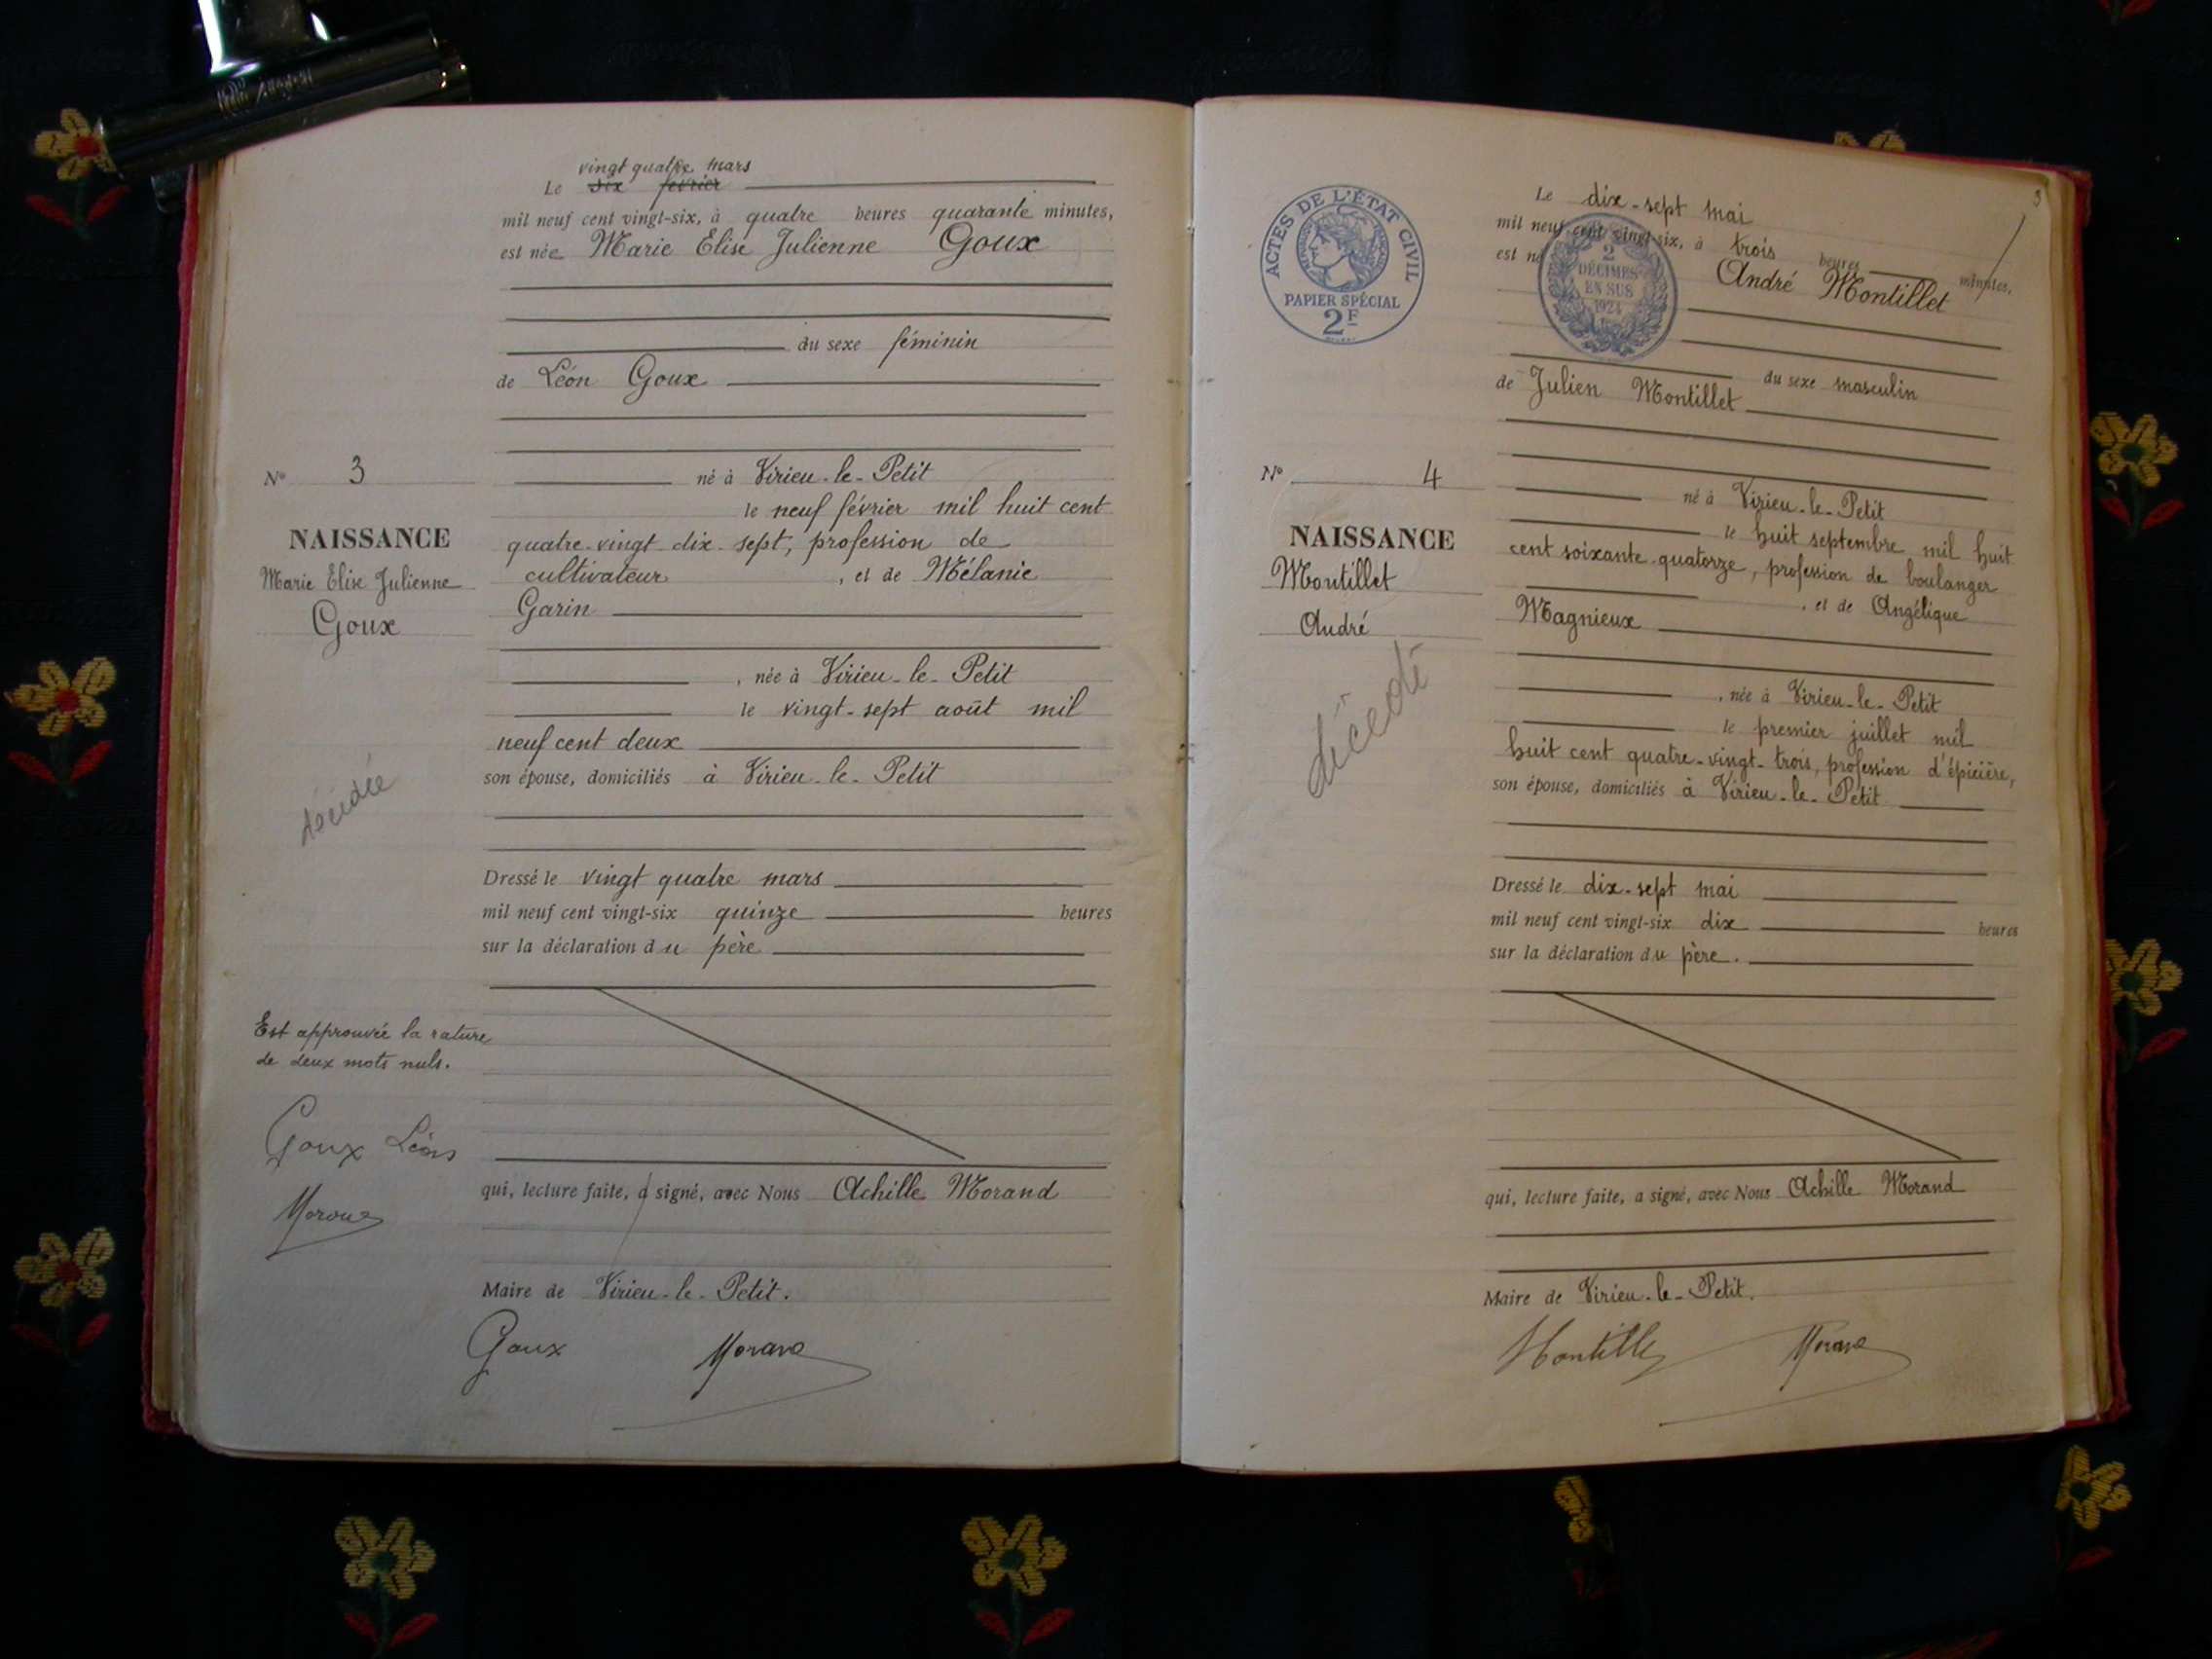 vingt quatre mars
Le six février
mil neuf cent vingt-six, à quatre heures quarante minutes,
est née Marie Elise Julienne Goux
du sexe féminin
de Léon Goux
né à Virieu-le-Petit
N° 3
le neuf février mil huit cent
NAISSANCE
quatre-vingt dix-sept, profession de
Marie Elise Julienne
cultivateur, et de Mélanie
Goux
Garin
, née à Virieu-le-Petit
le vingt-sept août mil
neuf cent deux
son épouse, domiciliés à Virieu-le-Petit
décédée
Dressé le vingt quatre mars
mil neuf cent vingt-six quinze heures
sur la déclaration du père
Est approuvée la rature
de deux mots nuls.
Goux Léon
qui, lecture faite, a signé, avec Nous Achille Morand
Morand
Maire de Virieu-le-Petit.
Goux Morand
3
ACTES DE L'ÉTAT CIVIL
PAPIER SPÉCIAL
2F
2
DÉCIMES
EN SUS
1924
Le dix-sept mai
mil neuf cent vingt-six, à trois heures minutes,
est né André Montillet
du sexe masculin
de Julien Montillet
N° 4
né à Virieu-le-Petit
le huit septembre mil huit
NAISSANCE
cent soixante-quatorze, profession de boulanger
Montillet
, et de Angélique
André
Magnieux
, née à Virieu-le-Petit
décédé
le premier juillet mil
huit cent quatre-vingt-trois, profession d'épicière,
son épouse, domiciliés à Virieu-le-Petit
Dressé le dix-sept mai
mil neuf cent vingt-six dix heures
sur la déclaration du père.
qui, lecture faite, a signé, avec Nous Achille Morand
Maire de Virieu-le-Petit.
Montillet Morand